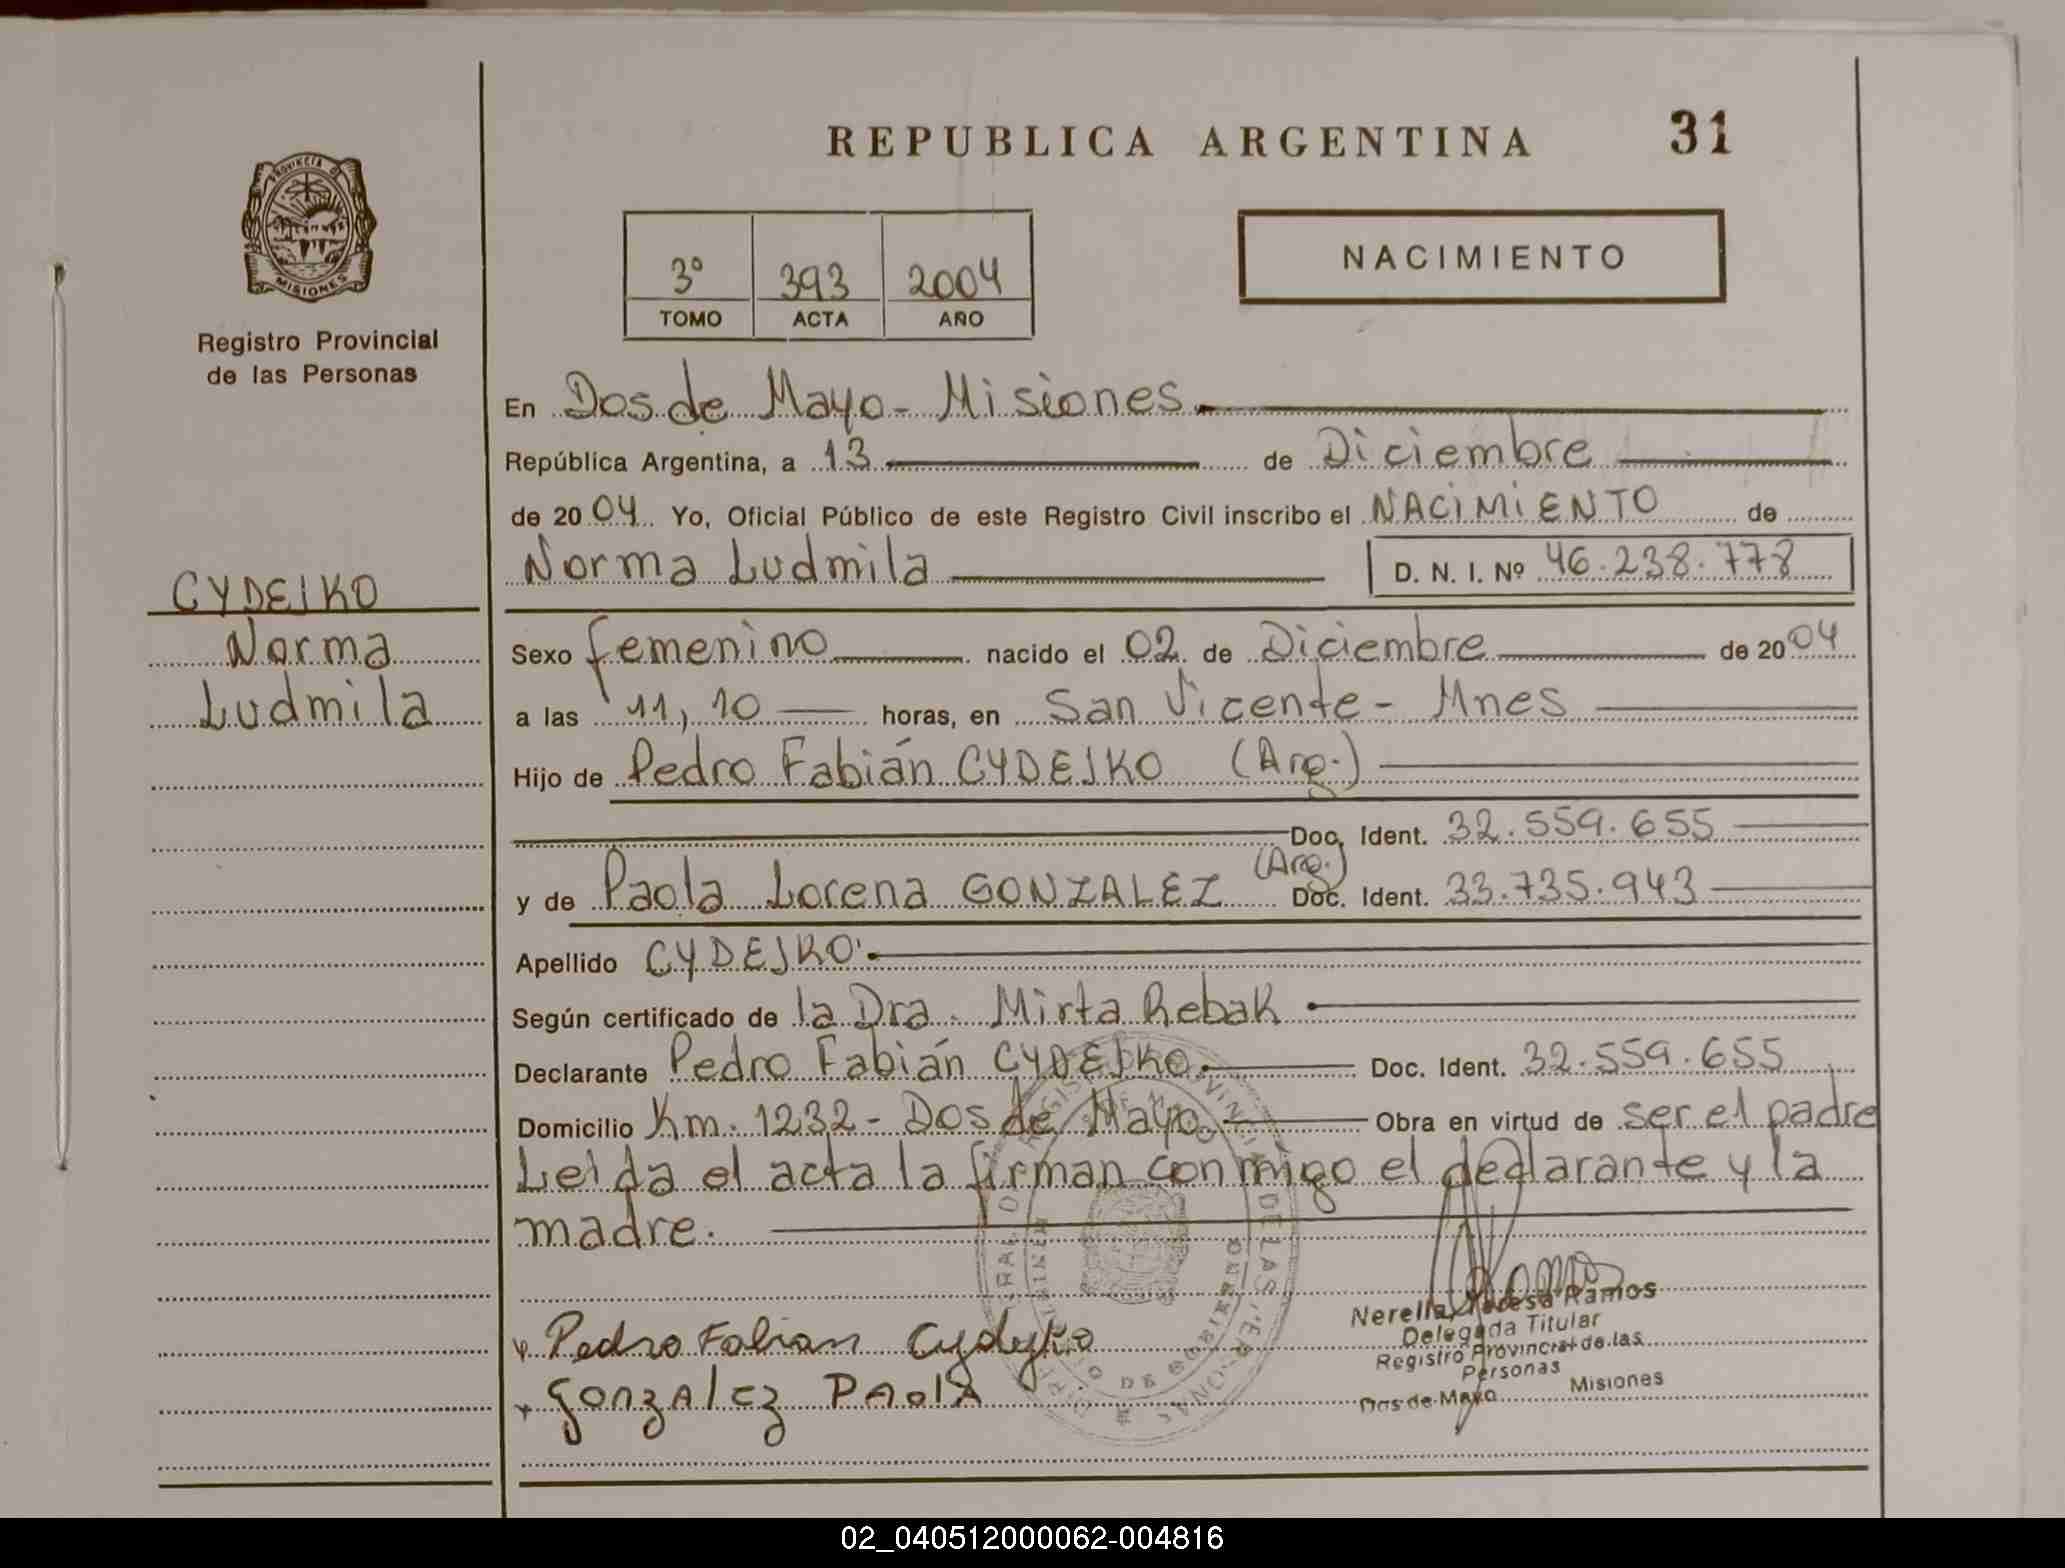 REPUBLICA ARGENTINA 31
PROVINCIA DE
MISIONES
Registro Provincial
de las Personas
3º 393 2004
TOMO ACTA AÑO
NACIMIENTO
En Dos de Mayo - Misiones
República Argentina, a 13 de Diciembre
de 2004 Yo, Oficial Público de este Registro Civil inscribo el NACIMIENTO de
Norma Ludmila D. N. I. Nº 46.238.778
CYDEJKO
Norma
Ludmila
Sexo femenino nacido el 02 de Diciembre de 2004
a las 11,10 horas, en San Vicente - Mnes
Hijo de Pedro Fabián CYDEJKO (Arg.)
Doc. Ident. 32.559.655
y de Paola Lorena GONZALEZ (Arg.) Doc. Ident. 33.735.943
Apellido CYDEJKO.
Según certificado de la Dra. Mirta Rebak
Declarante Pedro Fabián CYDEJKO. Doc. Ident. 32.559.655
Domicilio Km. 1232 - Dos de Mayo. Obra en virtud de ser el padre
Leida el acta la firman conmigo el declarante y la
madre.
Pedro Fabian Cydejko
Gonzalez PAolA
Nerella Teresa Ramos
Delegada Titular
Registro Provincial de las
Personas
Dos de Mayo Misiones
02_040512000062-004816